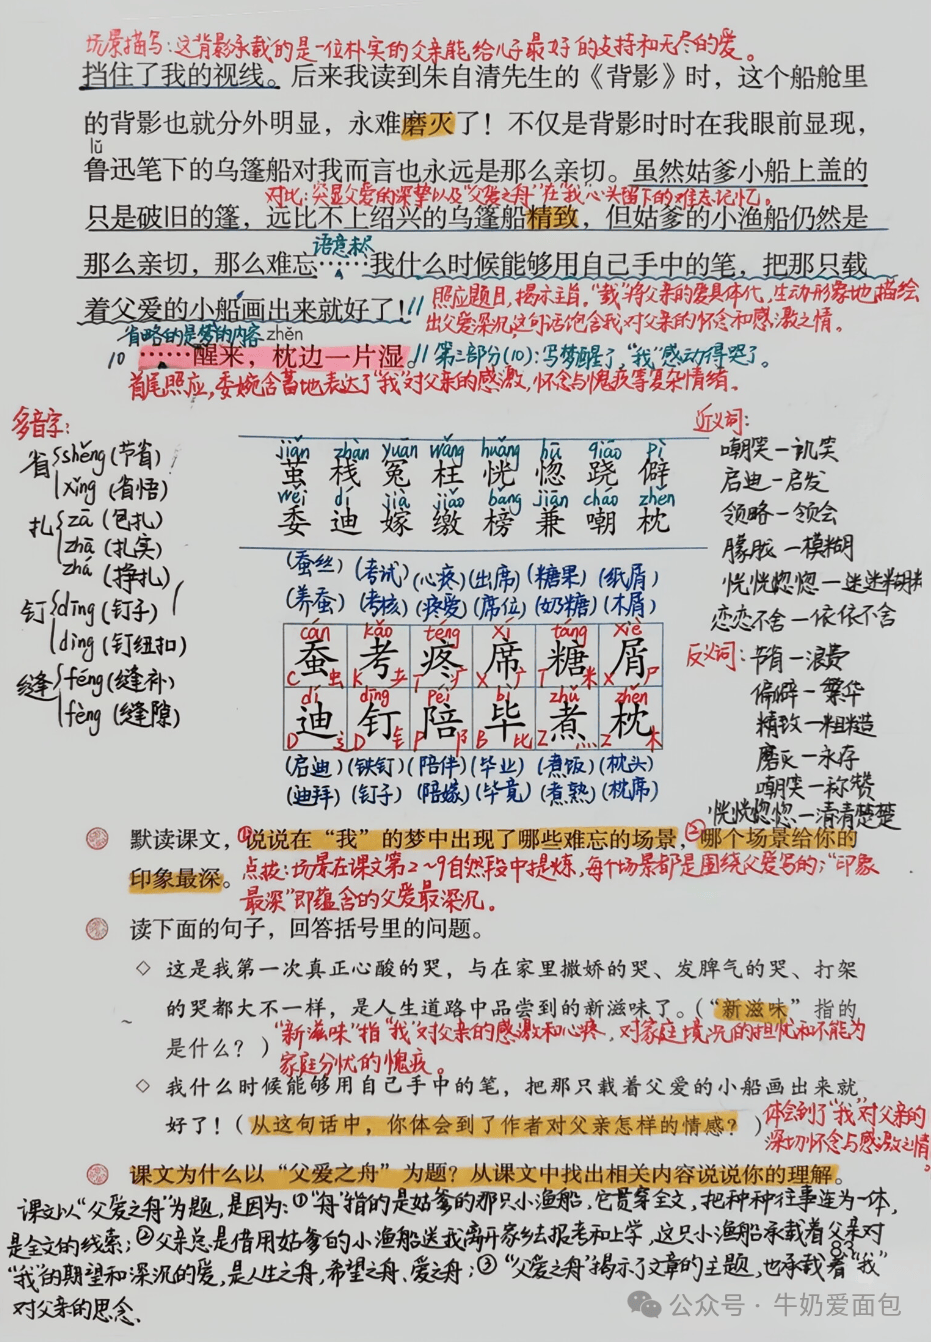 场景描写:这背影承载的是一位朴实的父亲能给儿子最好的支持和无尽的爱。
挡住了我的视线。后来我读到朱自清先生的《背影》时，这个船舱里
的背影也就分外明显，永难磨灭了！不仅是背影时时在我眼前显现，
lǔ
鲁迅笔下的乌篷船对我而言也永远是那么亲切。虽然姑爹小船上盖的
对比:突显父爱的深挚以及“父爱之舟”在“我”心头留下的难忘记忆。
只是破旧的篷，远比不上绍兴的乌篷船精致，但姑爹的小渔船仍然是
语意未尽
那么亲切，那么难忘……我什么时候能够用自己手中的笔，把那只载
着父爱的小船画出来就好了！
照应题目,揭示主旨。“载”将父亲的爱具体代,生动形象地描绘
出父爱深沉,这句话饱含我对父亲的怀念和感激之情。
省略的是梦的内容 zhěn
10 ……醒来，枕边一片湿。 第三部分(10):写梦醒了,“我”感动得哭了。
首尾照应,委婉含蓄地表达了“我”对父亲的感激,怀念与愧疚等复杂情绪。
多音字:
省 shěng(节省)
xǐng(省悟)
扎 zā(包扎)
zhā(扎实)
zhá(挣扎)
钉 dīng(钉子)
dìng(钉纽扣)
缝 féng(缝补)
fèng(缝隙)
jiǎn zhàn yuān wǎng huǎng hū qiāo pì
茧 栈 冤 枉 恍 惚 跷 僻
wěi dí jià jiǎo bǎng jiān cháo zhěn
委 迪 嫁 缴 榜 兼 嘲 枕
(蚕丝)(考试)(心疼)(出席)(糖果)(纸屑)
(养蚕)(考核)(疼爱)(席位)(奶糖)(木屑)
cán kǎo téng xí táng xiè
蚕 考 疼 席 糖 屑
C 虫 K 耂 T 疒 X 广 T 米 X 尸
dí dīng péi bì zhǔ zhěn
迪 钉 陪 毕 煮 枕
D 辶 D 钅 P 阝 B 比 Z 灬 Z 木
(启迪)(铁钉)(陪伴)(毕业)(煮饭)(枕头)
(迪拜)(钉子)(陪嫁)(毕竟)(煮熟)(枕席)
近义词:
嘲笑—讥笑
启迪—启发
领略—领会
朦胧—模糊
恍恍惚惚—迷迷糊糊
恋恋不舍—依依不舍
反义词:节省—浪费
偏僻—繁华
精致—粗糙
磨灭—永存
嘲笑—称赞
恍恍惚惚—清清楚楚
默读课文，①说说在“我”的梦中出现了哪些难忘的场景，②哪个场景给你的
印象最深。
点拨:场景在课文第2~9自然段中提炼,每个场景都是围绕父爱写的;“印象
最深”即蕴含的父爱最深沉。
读下面的句子，回答括号里的问题。
◇ 这是我第一次真正心酸的哭，与在家里撒娇的哭、发脾气的哭、打架
的哭都大不一样，是人生道路中品尝到的新滋味了。（“新滋味”指的
是什么？）
“新滋味”指“我”对父亲的感激和心疼,对家庭境况的担忧和不能为
家庭分忧的愧疚。
◇ 我什么时候能够用自己手中的笔，把那只载着父爱的小船画出来就
好了！（从这句话中，你体会到了作者对父亲怎样的情感？）
体会到了“我”对父亲的
深切怀念与感激之情。
课文为什么以“父爱之舟”为题？从课文中找出相关内容说说你的理解。
课文以“父爱之舟”为题,是因为:①“舟”指的是姑爹的那只小渔船,它贯穿全文,把种种往事连为一体,
是全文的线索;②父亲总是借用姑爹的小渔船送我离开家乡去报考和上学,这只小渔船承载着父亲对
83
“我”的期望和深沉的爱,是人生之舟,希望之舟、爱之舟;③“父爱之舟”揭示了文章的主题,也承载着“我”
对父亲的思念.
公众号·牛奶爱面包